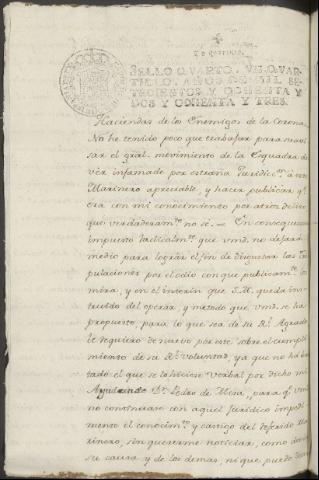 SELLO QVARTO, VN QVAR-
TILLO, AÑOS DE MIL SE-
TECIENTOS Y OCHENTA Y
DOS Y OCHENTA Y TRES.
Haciendas de los Enemigos de la Corona
No he tenido poco que trabajar para
sar el gral. movimiento de la Esquadra de
ver infamado por estraña Juridicc.n a este
Marinero apreciable, y hacer publicar q.
con mi conocimiento por atros delito
que verdaderam.te no sé. En consequencia
impuesto que vmd. no dejará
medio para lograr el fin de disgustar las Tri-
pulaciones por el odio con que publicam.te los
mira, y en el interin que S.M. queda ins-
truido del operar, y metodo que vmd. se ha
propuesto, para lo que sea de su R.l Agrado
le requiero de nuevo por este sobre el cumpli-
miento de su R.l voluntad, ya que no ha bas-
tado el que se lo hiciese verbal por dicho mi
Ayudante D.n Pedro de Mesa, para q.e vmd.
no continuase con aquel Juridico impedi-
mento el conocim.to y castigo del referido Ma-
rinero, sin quererme noticiar, como devia
su causa y de los demas, ni que puedo